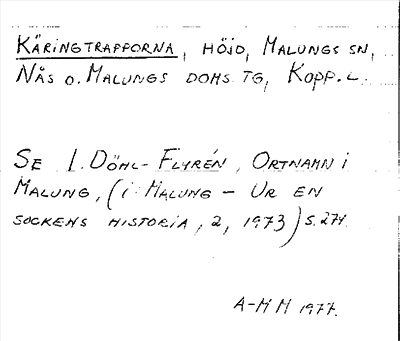 Käringtrapporna, höjd, Malungs sn,
Nås o. Malungs doms. tg, Kopp. l.
Se I. Döhl-Flyrén, Ortnamn i
Malung, (i: Malung – Ur en
sockens historia, 2, 1973) s. 274.
A-M M 1977.